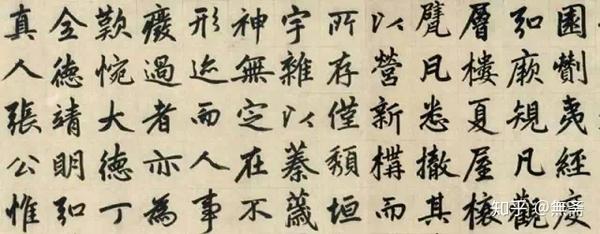 劗夷經度
弘厥規凡觀
層樓夏屋榱
甓凡悉撤其
以營新構而
所存僅頽垣
宇雜以蓁葴
神無定在不
形迹而人事
癈過者亦為
歎惋大德丁
全德靖明弘
真人張公惟
知乎 @無斋